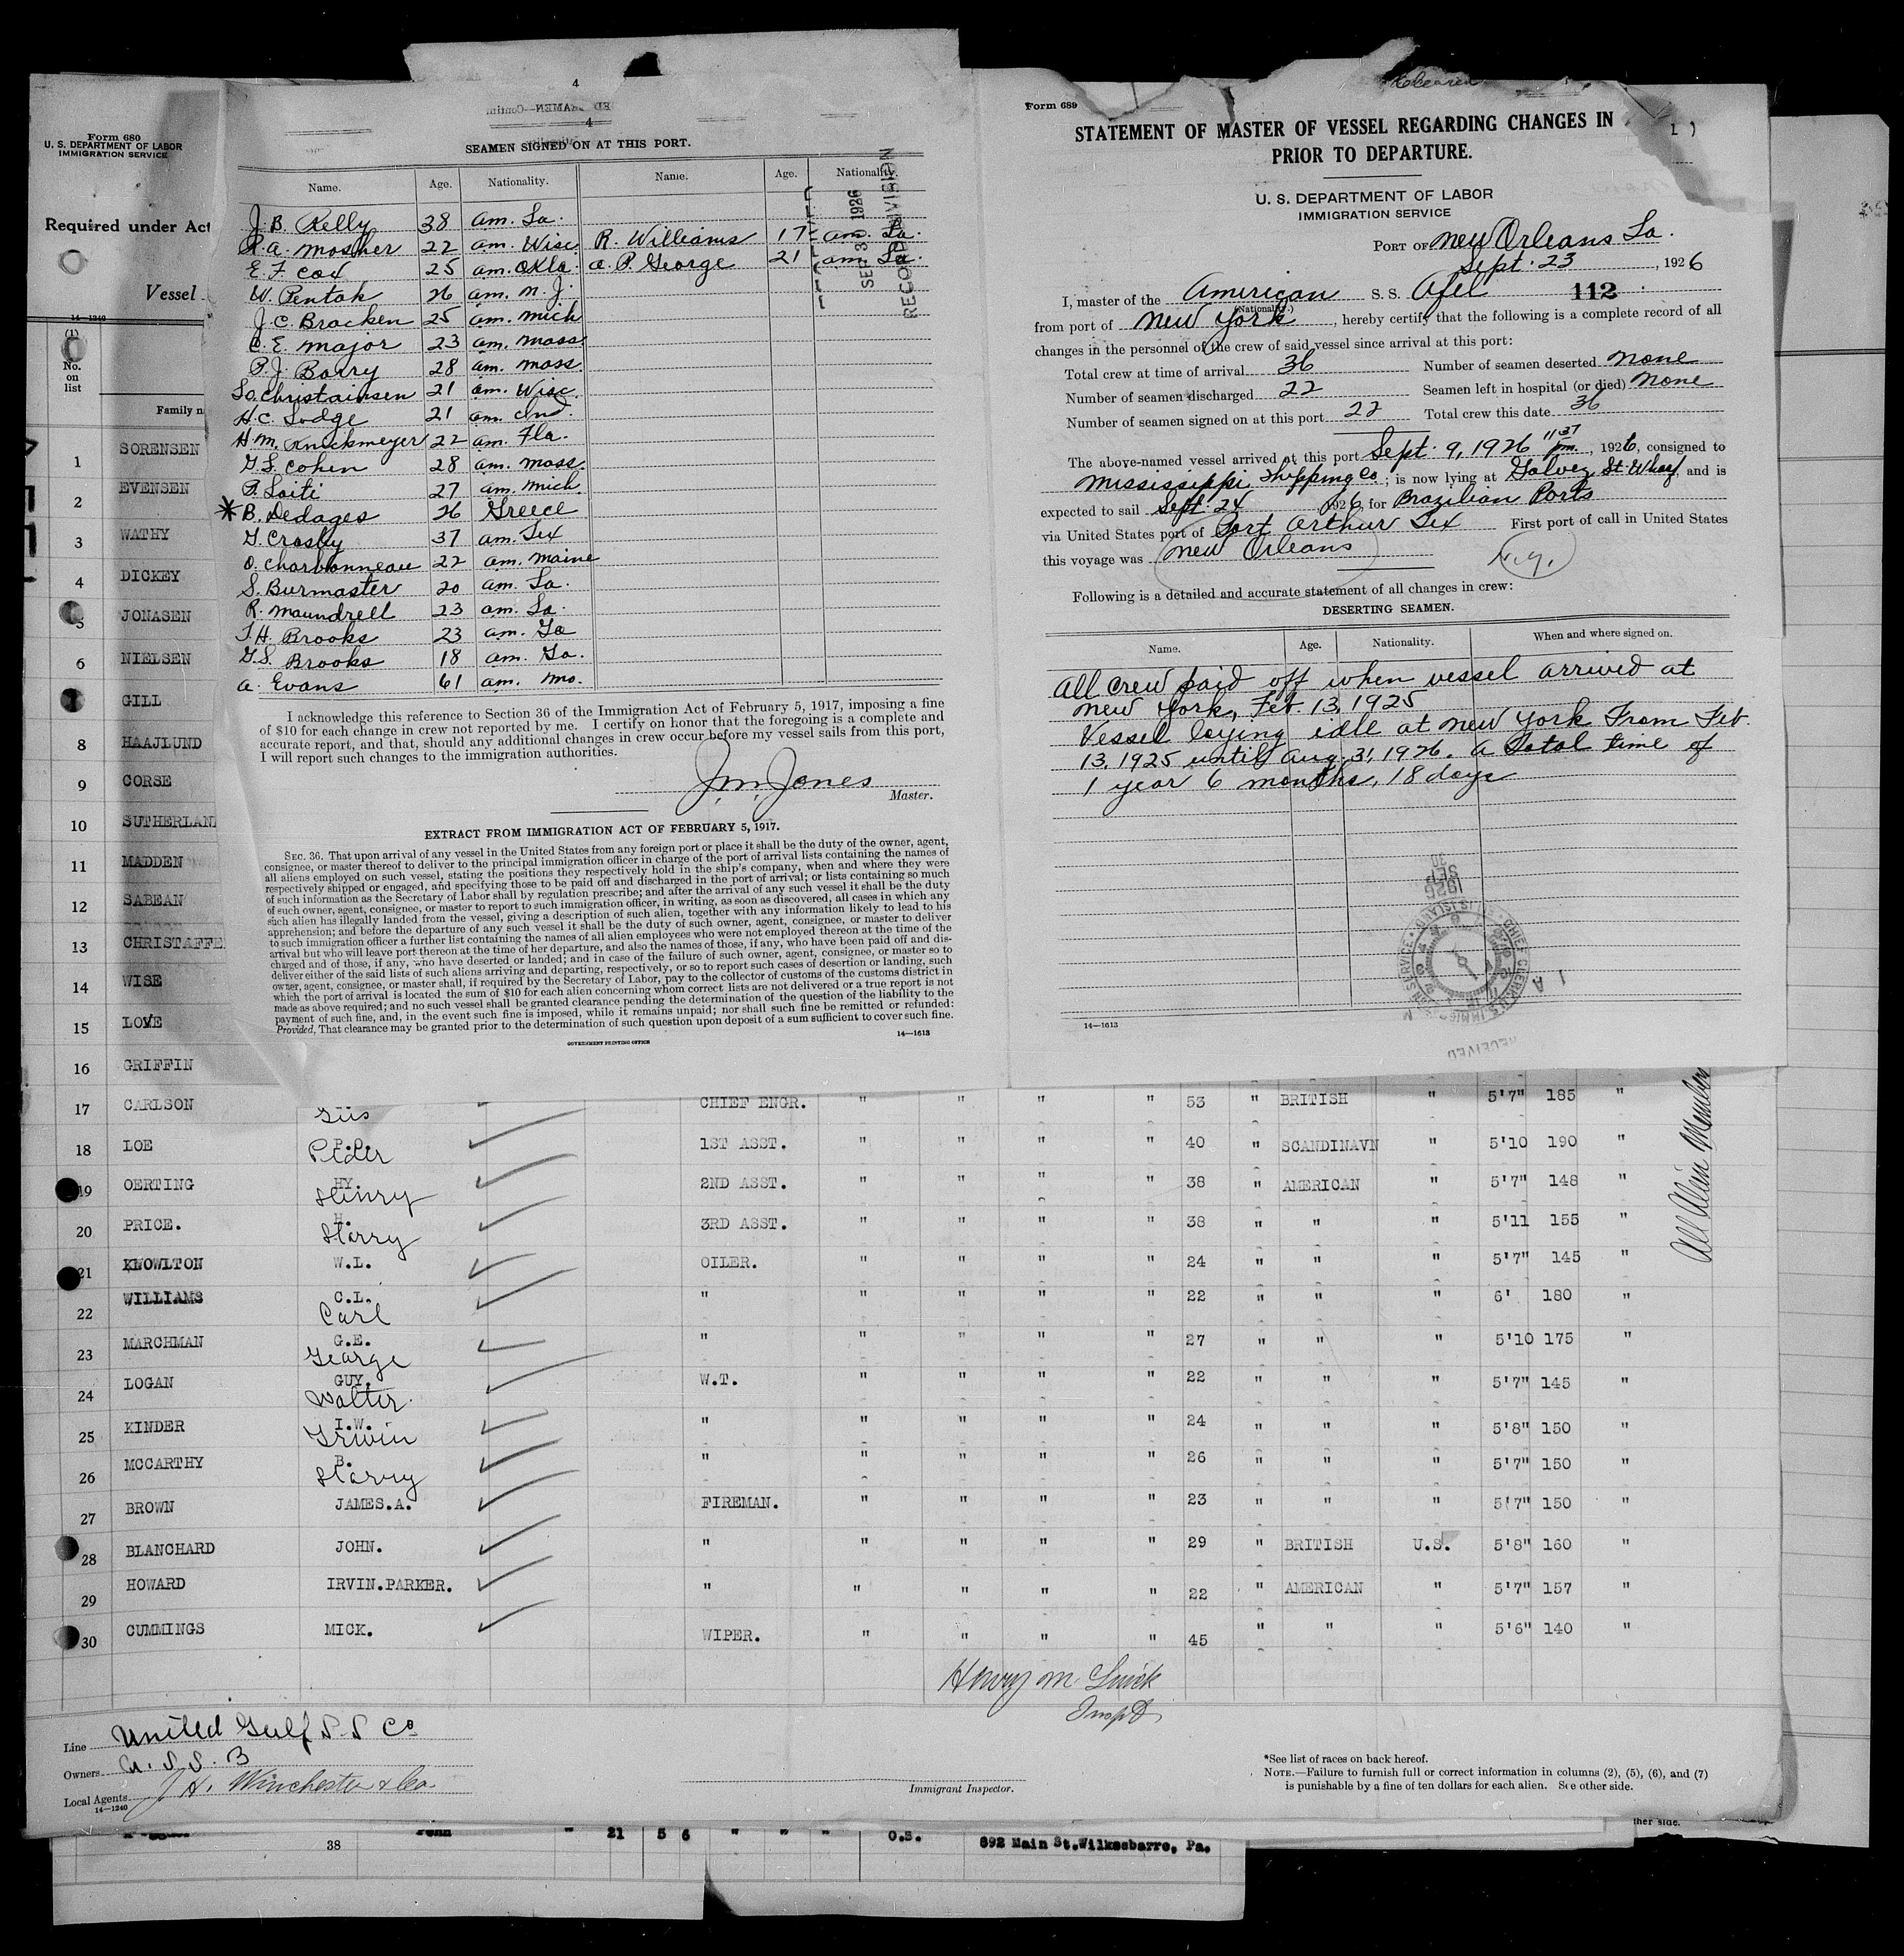 4
4
SEAMEN SIGNED ON AT THIS PORT.
Name. Age. Nationality. Name. Age. Nationality.
J. B. Kelly 38 am. La.
R.A. Mosher 22 am. Wisc R. Williams 17 am. La.
E. F. Cox 25 am. Okla. A. P. George 21 am. La.
W. Pentak 26 am. N. J.
J. C. Bracken 25 am. Mich
C. E. Major 23 am. Mass.
P. J. Barry 28 am. Mass
Lo. Christainsen 21 am. Wisc.
H. C. Lodge 21 am. Ind.
H. M. Knickmeyer 22 am. Fla.
G. S. Cohen 28 am. Mass.
P. Laiti 27 am. Mich.
* B. Dedages 26 Greece
G. Crosby 37 am. Tex
O. Charbonneau 22 am. Maine
S. Burmaster 20 am. La.
R. Maundrell 23 am. La.
T. H. Brooks 23 am. Ga
G. S. Brooks 18 am. Ga.
A. Evans 61 am. Mo.
SEP 30 1926
RECORD DIVISION
I acknowledge this reference to Section 36 of the Immigration Act of February 5, 1917, imposing a fine
of $10 for each change in crew not reported by me. I certify on honor that the foregoing is a complete and
accurate report, and that, should any additional changes in crew occur before my vessel sails from this port,
I will report such changes to the immigration authorities.
J. M. Jones
Master.
EXTRACT FROM IMMIGRATION ACT OF FEBRUARY 5, 1917.
SEC. 36. That upon arrival of any vessel in the United States from any foreign port or place it shall be the duty of the owner, agent,
consignee, or master thereof to deliver to the principal immigration officer in charge of the port of arrival lists containing the names of
all aliens employed on such vessel, stating the positions they respectively hold in the ship's company, when and where they were
respectively shipped or engaged, and specifying those to be paid off and discharged in the port of arrival; or lists containing so much
of such information as the Secretary of Labor shall by regulation prescribe; and after the arrival of any such vessel it shall be the duty
of such owner, agent, consignee, or master to report to such immigration officer, in writing, as soon as discovered, all cases in which any
such alien has illegally landed from the vessel, giving a description of such alien, together with any information likely to lead to his
apprehension; and before the departure of any such vessel it shall be the duty of such owner, agent, consignee, or master to deliver
to such immigration officer a further list containing the names of all alien employees who were not employed thereon at the time of the
arrival but who will leave port thereon at the time of her departure, and also the names of those, if any, who have been paid off and dis-
charged and of those, if any, who have deserted or landed; and in case of the failure of such owner, agent, consignee, or master so to
deliver either of the said lists of such aliens arriving and departing, respectively, or so to report such cases of desertion or landing, such
owner, agent, consignee, or master shall, if required by the Secretary of Labor, pay to the collector of customs of the customs district in
which the port of arrival is located the sum of $10 for each alien concerning whom correct lists are not delivered or a true report is not
made as above required; and no such vessel shall be granted clearance pending the determination of the question of the liability to the
payment of such fine, and, in the event such fine is imposed, while it remains unpaid; nor shall such fine be remitted or refunded:
Provided, That clearance may be granted prior to the determination of such question upon deposit of a sum sufficient to cover such fine.
14—1613
GOVERNMENT PRINTING OFFICE
Form 689
STATEMENT OF MASTER OF VESSEL REGARDING CHANGES IN
PRIOR TO DEPARTURE.
U. S. DEPARTMENT OF LABOR
IMMIGRATION SERVICE
PORT OF New Orleans La.
Sept. 23, 1926
I, master of the American S. S. Afel 112
(Nationality.)
from port of New York, hereby certify that the following is a complete record of all
changes in the personnel of the crew of said vessel since arrival at this port:
Total crew at time of arrival 36 Number of seamen deserted None
Number of seamen discharged 22 Seamen left in hospital (or died) None
Number of seamen signed on at this port 22 Total crew this date 36
The above-named vessel arrived at this port Sept. 9, 1926 11 37 pm., 1926, consigned to
Mississippi Shipping Co.; is now lying at Galvez St. Wharf, and is
expected to sail Sept. 24 1926, for Brazilian Ports
via United States port of Port Arthur Tex First port of call in United States
this voyage was New Orleans N.Y.
Following is a detailed and accurate statement of all changes in crew:
DESERTING SEAMEN.
Name. Age. Nationality. When and where signed on.
All crew paid off when vessel arrived at
New York, Feb. 13, 1925
Vessel laying idle at New York From Feb.
13, 1925 until Aug. 31, 1926. A total time of
1 year 6 months, 18 days
1926
SEP
30
14—1613
RECEIVED
Form 680
U. S. DEPARTMENT OF LABOR
IMMIGRATION SERVICE
Required under Act
Vessel
14—1240
(1)
No.
on
list
Family n
1 SORENSEN
2 EVENSEN
3 WATHY
4 DICKEY
5 JONASEN
6 NIELSEN
GILL
8 HAAJLUND
9 CORSE
10 SUTHERLAND
11 MADDEN
12 SABEAN
13 CHRISTAFFE
14 WISE
15 LOVE
16 GRIFFIN
17 CARLSON Gus CHIEF ENGR. " " " " 53 " BRITISH " 5'7" 185 "
18 LOE P. Peder 1ST ASST. " " " " 40 " SCANDINAVN " 5'10 190 "
19 OERTING HY. Henry 2ND ASST. " " " " 38 " AMERICAN " 5'7" 148 "
20 PRICE. H. Harry 3RD ASST. " " " " 38 " " " 5'11 155 "
21 KNOWLTON W.L. OILER. " " " " 24 " " " 5'7" 145 "
22 WILLIAMS C.L. Carl " " " " " 22 " " " 6' 180 "
23 MARCHMAN G.E. George " " " " " 27 " " " 5'10 175 "
24 LOGAN GUY. Walter. W.T. " " " " 22 " " " 5'7" 145 "
25 KINDER I.W. Irwin " " " " " 24 " " " 5'8" 150 "
26 MCCARTHY B. Harry " " " " " 26 " " " 5'7" 150 "
27 BROWN JAMES.A. FIREMAN. " " " " 23 " " " 5'7" 150 "
28 BLANCHARD JOHN. " " " " " 29 " BRITISH U.S. 5'8" 160 "
29 HOWARD IRVIN.PARKER. " " " " " 22 " AMERICAN " 5'7" 157 "
30 CUMMINGS MICK. WIPER. " " " " 45 " " " 5'6" 140 "
All Alien Members
Henry M.
Insp
Line United Gulf S.S Co
Owners U.S.S.B
Local Agents J H. Winchester & Co.
14—1240
Immigrant Inspector.
*See list of races on back hereof.
NOTE.—Failure to furnish full or correct information in columns (2), (5), (6), and (7)
is punishable by a fine of ten dollars for each alien. See other side.
ther side.
38 Penn " 21 5 6 " " " 0.S. 692 Main St.Wilkesbarre, Pa.